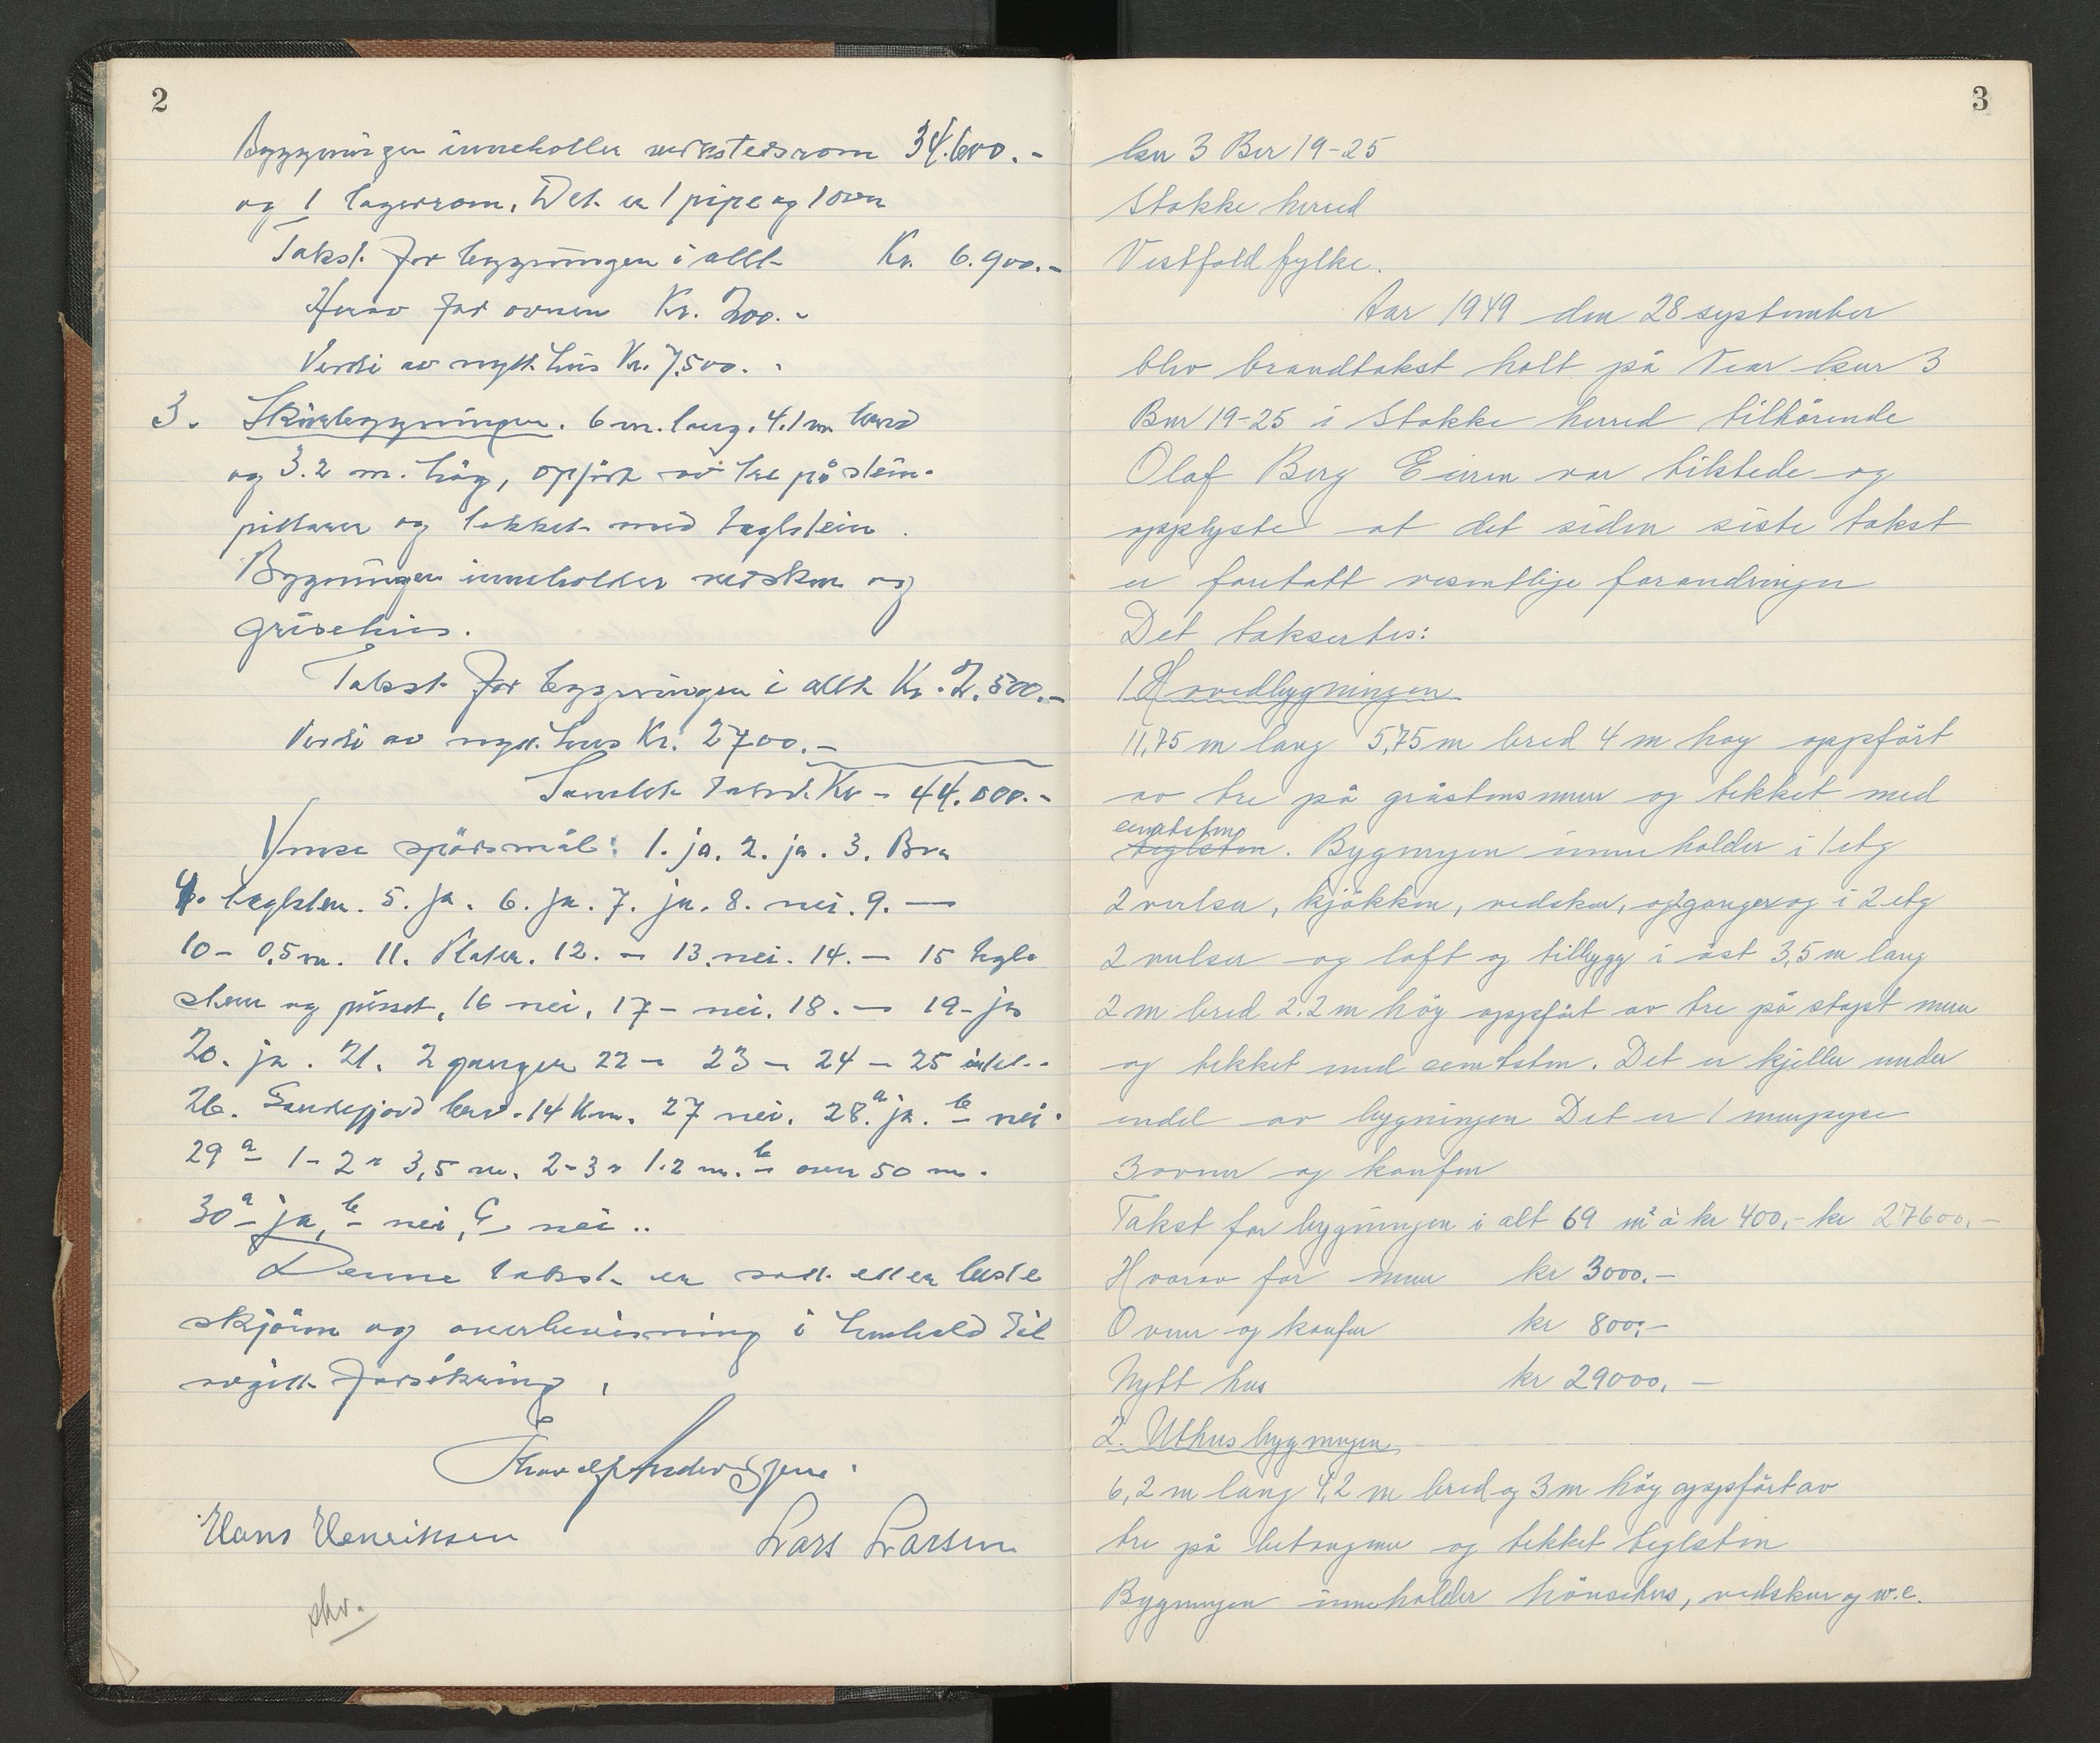 2
Byggningen inneholller verkstedsrom 34.600.-
og 1 lagerrom. Det er 1 pipe og 1 ovn
Takst for byggningen i allt Kr. 6.900.-
Herav for ovnen Kr. 200.-
Verdi av nytt hus Kr. 7.500.-
3. Skurbyggningen. 6 m. lang. 4.1 m bred
og 3.2 m. høg, opført av tre på stein-
pillarer og tekket med taglstein.
Bygningen inneholder vedskur og
grisehus.
Takst for byggningen i allt Kr. 2.500.-
Verdi av nytt hus Kr. 2700.-
Samlet takst Kr - 44.000.-
Ymse spörsmål: 1. ja. 2. ja. 3. Bra
4. taglsten. 5. ja. 6. ja. 7. ja. 8. nei. 9. —
10 - 0,5 m. 11. Plater. 12. — 13. nei. 14. — 15 tegl-
sten og pusset, 16 nei, 17 - nei. 18. — 19 - ja
20. ja. 21. 2 ganger 22 — 23 — 24 — 25 intet..
26. Sandefjord brv. 14 Km. 27 nei. 28 a ja. b nei.
29 a 1 - 2 = 3,5 m. 2 - 3 = 1.2 m. b over 50 m.
30 a ja, b nei, c nei..
Denne takst er satt etter beste
skjönn og overbevisning i henhold til
avgitt forsikring.
Thoralf Andersen
Hans Henriksen Lars Larsen
skr.
3
Gnr 3 Bnr 19-25
Stokke herred
Vestfold fylke.
Aar 1949 den 28 september
blev brandtakst holt på Vear Gnr 3
Bnr 19-25 i Stokke herred tilhörende
Olaf Berg Eieren var tilstede og
opplyste at det siden siste takst
er foretatt vesentlige forandringer
Det taksertes:
1. Hovedbygningen
11,75 m lang 5,75 m bred 4 m høy oppfört
av tre på gråstensmur og tekket med
cemtsten
teglsten. Bygningen inneholder i 1 etg
2 værelser, kjökken, vedskur, og 2 ganger og i 2 etg
2 værelser og loft og tilbygg i øst 3,5 m lang
2 m bred 2.2 m höy oppfört av tre på støpt mur
og tekket med cemtsten. Det er kjeller under
endel av bygningen Det er 1 murpipe
3 ovner og komfur
Takst for bygningen i alt 69 m² à kr 400,- kr 27600,-
Hvorav for mur kr 3000.-
Ovner og komfur kr 800,-
Nytt hus kr 29000,-
2. Uthusbygningen
6,2 m lang 4,2 m bred og 3 m höy oppfört av
tre på betongmur og tekket teglsten
Bygningen inneholder hönsehus, vedskur og w.c.